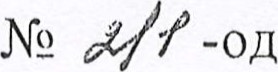 № 211-од